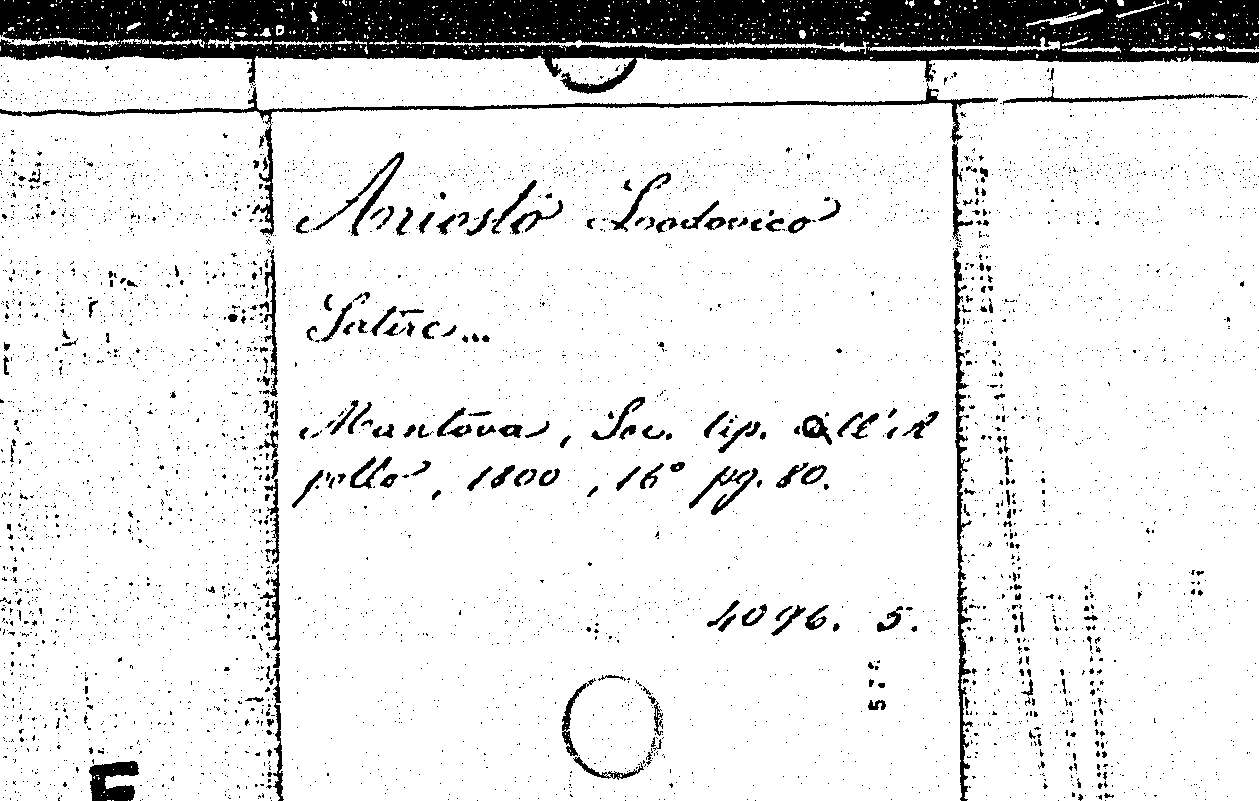 Ariosto Lodovico
Satire...
Mantova, Soc. tip. dell'A
pollo, 1800, 16° pg. 80.
4096. 5.